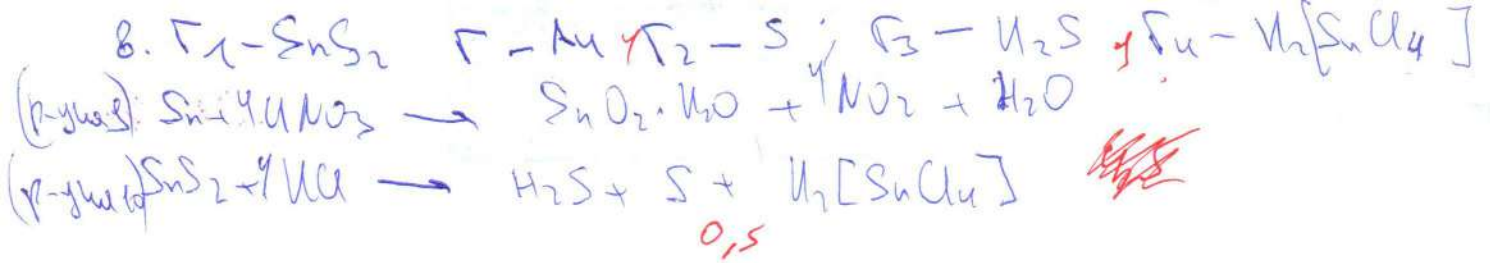 8. Г1 – SnS2 Г – Au, Г2 – S; Г3 – H2S, Г4 – H2[SnCl4]
(р-ция 9): Sn + 4HNO3 → SnO2·H2O + 4NO2 + H2O
SnS2 + 4HCl → H2S + S + H2[SnCl4]
0,5